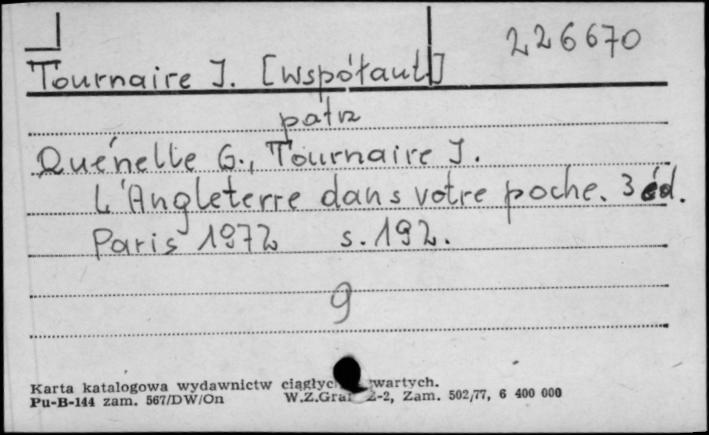 226670
Tournaire J. [współaut.]
patrz
Quénelle G., Tournaire J.
L'Angleterre dans votre poche. 3 éd.
Paris 1972 s. 192.
9
Karta katalogowa wydawnictw ciągłych zwartych.
Pu-B-144 zam. 567/DW/On W.Z.Graf. Z-2, Zam. 502/77, 6 400 000